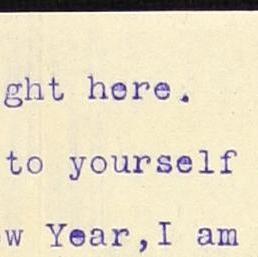 ght here.
to yourself
w Year,I am